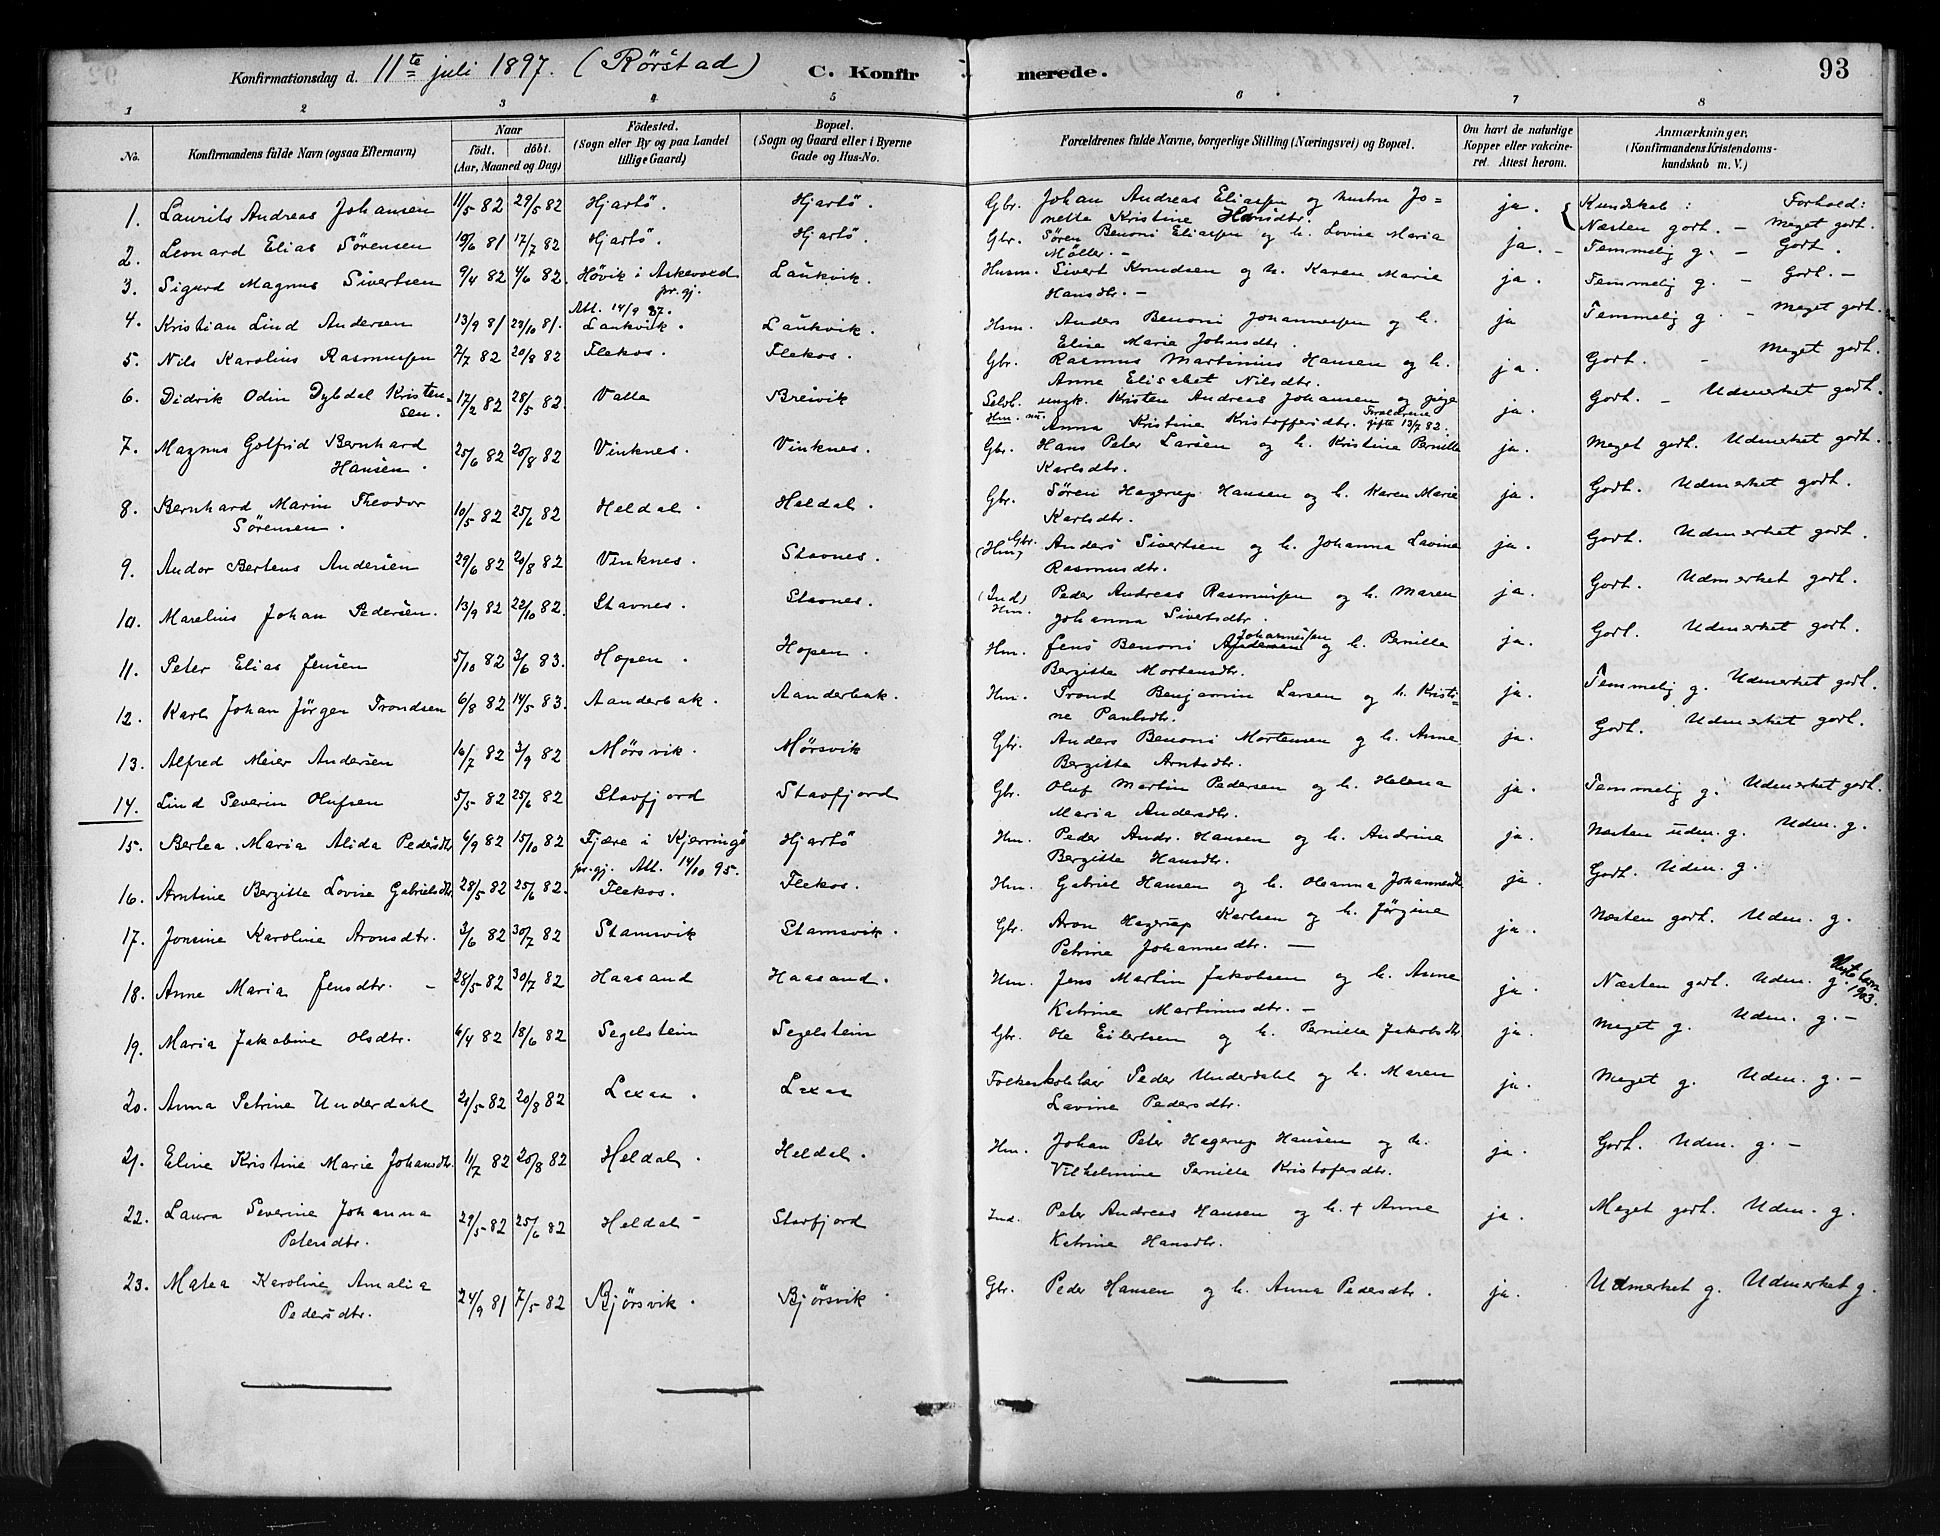 Konfirmationsdag d. 11te juli 1897. (Rørstad) C. Konfirmerede. 93
1 2 3 4 5 6 7 8
No. Konfirmandens fulde Navn (ogsaa Efternavn) Naar födt. döbt. (Aar, Maaned og Dag) Födested. (Sogn eller By og paa Landet tillige Gaard) Bopæl. (Sogn og Gaard eller i Byerne Gade og Hus-No. Forældrenes fulde Navne, borgerlige Stilling (Næringsvei) og Bopæl. Om havt de naturlige Kopper eller vakcineret. Attest herom. Anmærkninger. (Konfirmandens Kristendomskundskab m. V.)
Kundskab: Forhold:
1. Laurits Andreas Johansen 11/5 82 29/5 82 Hjartø. Hjartø. Gbr. Johan Andreas Eliassen og hustru Jo=
nette Kristine Hansdtr. ja. Næsten godt. - Meget godt.
2. Leonard Elias Sørensen 19/6 81 17/7 82 Hjartø. Hjartø. Gbr. Søren Benoni Eliassen og h. Lovise Maria
Møller. - ja. - Temmelig g. - Godt.
3. Sigurd Magnus Sivertsen 9/4 82 4/6 82. Høvik i Askevold
pr.gj.
Att. 14/9 87. Laukvik. Husm. Sivert Knudsen og h. Karen Marie
Hansdtr. - ja. Temmelig g. - Godt. -
4. Kristian Lind Andersen 13/9 81 29/10 81. Laukvik. Laukvik. Hsm. Anders Benoni Johannessen og h.
Elise Maria Johnsdtr. ja Temmelig g. - Meget godt.
5. Nils Karolius Rasmussen 7/7 82 20/8 82 Flekos. Flekos. Gbr. Rasmus Martinius Hansen og h.
Anne Elisabet Nilsdtr. ja. Godt. - Meget godt.
6. Didrik Odin Dybdal Kristen-
sen. 17/2 82 28/5 82. Valle Breivik Selvl. ungk. Kristen Andreas Johansen og pige
Hm. nu. Anna Kristine Kristoffersdtr. Forældrene gifte 13/7 82. ja. Godt. - Udmerket godt.
7. Magnus Golfrid Bernhard
Hansen. 25/6 82 20/8 82 Vinknes. Vinknes. Gbr. Hans Peter Larsen og h. Kristine Pernille
Karlsdtr. ja. Meget godt. Udmerket godt.
8. Bernhard Marin Theodor
Sørensen. 10/5 82 25/6 82 Heldal. Heldal. Gbr. Søren Hagerup Hansen og h. Karen Marie
Karlsdtr. ja. Godt. Udmerket godt.
9. Andor Bertens Andersen 29/6 82 20/8 82 Vinknes. Stavnes. Gbr. (Hm) Anders Sivertsen og h. Johanna Lavine
Rasmusdtr. ja. Godt. Udmerket godt.
10. Marelius Johan Pedersen. 13/9 82 22/10 82. Stavnes. Stavnes. (Ind) Hm. Peder Andreas Rasmussen og h. Maren
Johanna Sivertsdtr. ja. Godt. Udmerket godt.
11. Peter Elias Jensen 5/10 82 3/6 83. Hopen. Hopen. Hm. Jens Benoni Andersen Johannessen og h. Pernille
Bergitte Mortensdtr. ja. Godt. Udmerket godt.
12. Karl Johan Jørgen Trondsen 6/8 82 14/5 83. Aanderbak. Aanderbak. Hm. Trond Benjamin Larsen og h. Kristi=
ne Paulsdtr. ja. Temmelig g. Udmerket godt.
13. Alfred Meier Andersen 16/7 82 3/9 82 Mørsvik. Mørsvik Gbr. Anders Benoni Mortensen og h. Anne
Bergitte Arntsdtr. ja. Godt. Udmerket godt.
14. Lind Severin Olufsen 5/5 82 25/6 82 Stavfjord Stavfjord Gbr. Oluf Martin Pedersen og h. Helena
Maria Andersdtr. ja. Temmelig g. Udmerket godt.
15. Bertea Maria Alida Pedersdtr 6/9 82 15/10 82 Fjære i Kjerringø
pr.gj. Att. 14/10 95. Hjartø Hm. Peder Andr. Hansen og h. Andrina
Bergitte Hansdtr. ja. Næsten udm. g. Udm. g.
16. Arntine Bergitte Lovise Gabrielsdtr 28/5 82 25/6 82. Flekos. Flekos. Hm. Gabriel Hansen og h. Oleanna Johannesdtr ja. Godt. Udm. g.
17. Jonsine Karoline Aronsdtr. 3/6 82 30/7 82 Stamsvik Stamsvik. Gbr. Aron Hagerup Karlsen og h. Jørgine
Petrine Johannesdtr. - ja. Næsten godt. Udm. g.
18. Anne Maria Jensdtr. - 28/5 82 30/7 82 Haasand Haasand. Hm. Jens Martin Jakobsen og h. Anne
Katrine Martinusdtr. - ja. Næsten godt. Udm. g. 1903.
19. Maria Jakobine Olsdtr. 6/4 82 18/6 82 Segelstein Segelstein Gbr. Ole Eilertsen og h. Pernille Jakobsdtr. ja. Meget g. Udm. g. -
20. Anna Petrine Underdahl 21/5 82 20/8 82 Lexaa. Lexaa Folkeskolelær Peder Underdahl og h. Maren
Lavine Pedersdtr. ja. Meget g. Udm. g. -
21. Eline Kristine Marie Johansdtr. 11/7 82 20/8 82 Heldal. Heldal. Hm. Johan Peter Hagerup Hansen og h.
Vilhelmine Pernille Kristofersdtr. ja. Godt. Udm. g. -
22. Laura Severine Johanna
Petersdtr. 29/5 82 25/6 82 Heldal - Stavfjord Ind. Peter Andreas Hansen og h. + Anne
Katrine Hansdtr. ja. Meget godt. Udm. g.
23. Matea Karoline Amalia
Pedersdtr. 24/9 81 7/5 82 Bjørsvik. Bjørsvik Gbr. Peder Hansen og h. Anna Pedersdtr. ja. Udmerket g. Udmerket g.